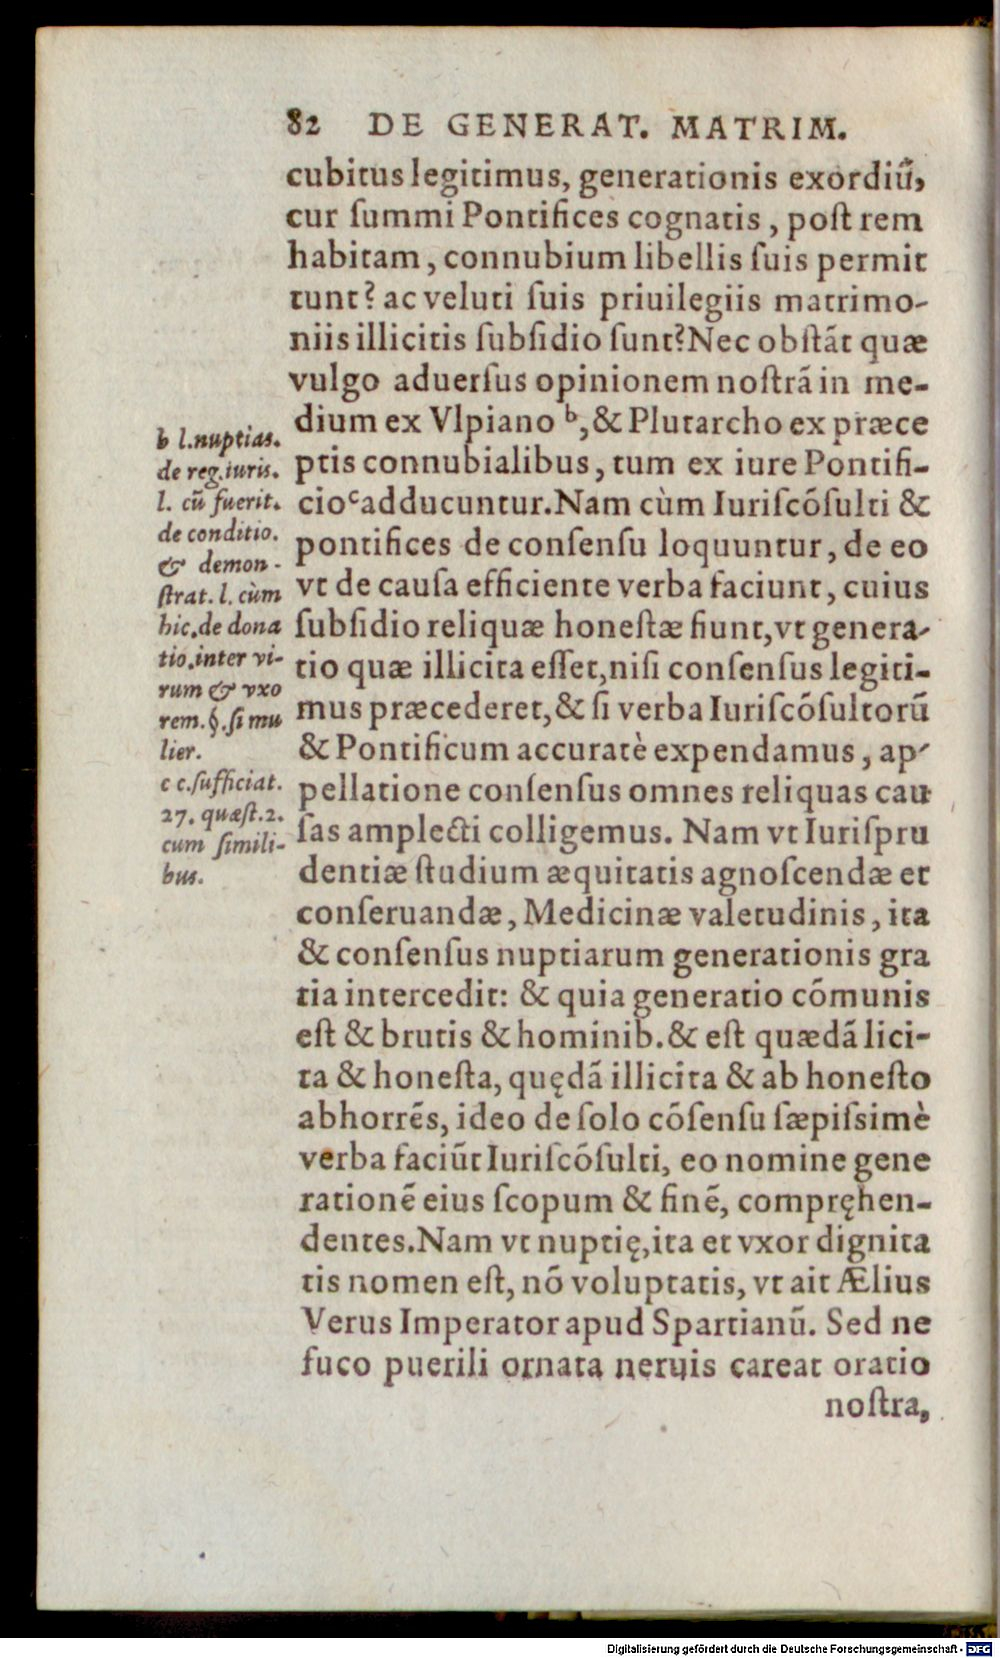 82 DE GENERAT. MATRIM.
cubitus legitimus, generationis exordiũ,
cur ſummi Pontifices cognatis, poſt rem
habitam, connubium libellis ſuis permit
tunt? ac veluti ſuis priuilegiis matrimo-
niis illicitis ſubſidio ſunt? Nec obſtãt quæ
vulgo aduerſus opinionem noſtrã in me-
dium ex Vlpiano ᵇ, & Plutarcho ex præce
ptis connubialibus, tum ex iure Pontifi-
cioᶜ adducuntur. Nam cùm Iuriſcõſulti &
pontifices de conſenſu loquuntur, de eo
vt de cauſa efficiente verba faciunt, cuius
ſubſidio reliquæ honeſtæ fiunt, vt genera-
tio quæ illicita eſſet, niſi conſenſus legiti-
mus præcederet, & ſi verba Iuriſcõſultorũ
& Pontificum accuratè expendamus, ap-
pellatione conſenſus omnes reliquas cau
ſas amplecti colligemus. Nam vt Iuriſpru
dentiæ ſtudium æquitatis agnoſcendæ et
conſeruandæ, Medicinæ valetudinis, ita
& conſenſus nuptiarum generationis gra
tia intercedit: & quia generatio cõmunis
eſt & brutis & hominib. & eſt quædã lici-
ta & honeſta, quędã illicita & ab honeſto
abhorrẽs, ideo de ſolo cõſenſu ſæpiſsimè
verba faciũt Iuriſcõſulti, eo nomine gene
rationẽ eius ſcopum & finẽ, compręhen-
dentes. Nam vt nuptię, ita et vxor dignita
tis nomen eſt, nõ voluptatis, vt ait Ælius
Verus Imperator apud Spartianũ. Sed ne
fuco puerili ornata neruis careat oratio
noſtra,
b l. nuptias.
de reg. iuris.
l. cũ fuerit.
de conditio.
& demon-
ſtrat. l. cùm
hic. de dona
tio. inter vi-
rum & vxo
rem. §. ſi mu
lier.
c c. ſufficiat.
27. quæſt. 2.
cum ſimili-
bus.
Digitalisierung gefördert durch die Deutsche Forschungsgemeinschaft - DFG